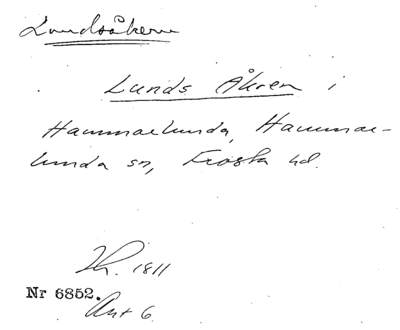 Lundsåkern
Lunds Åkren i
Hammarlunda, Hammar-
lunda sn, Frosta hd.
1811
Nr 6852.
Akt 6